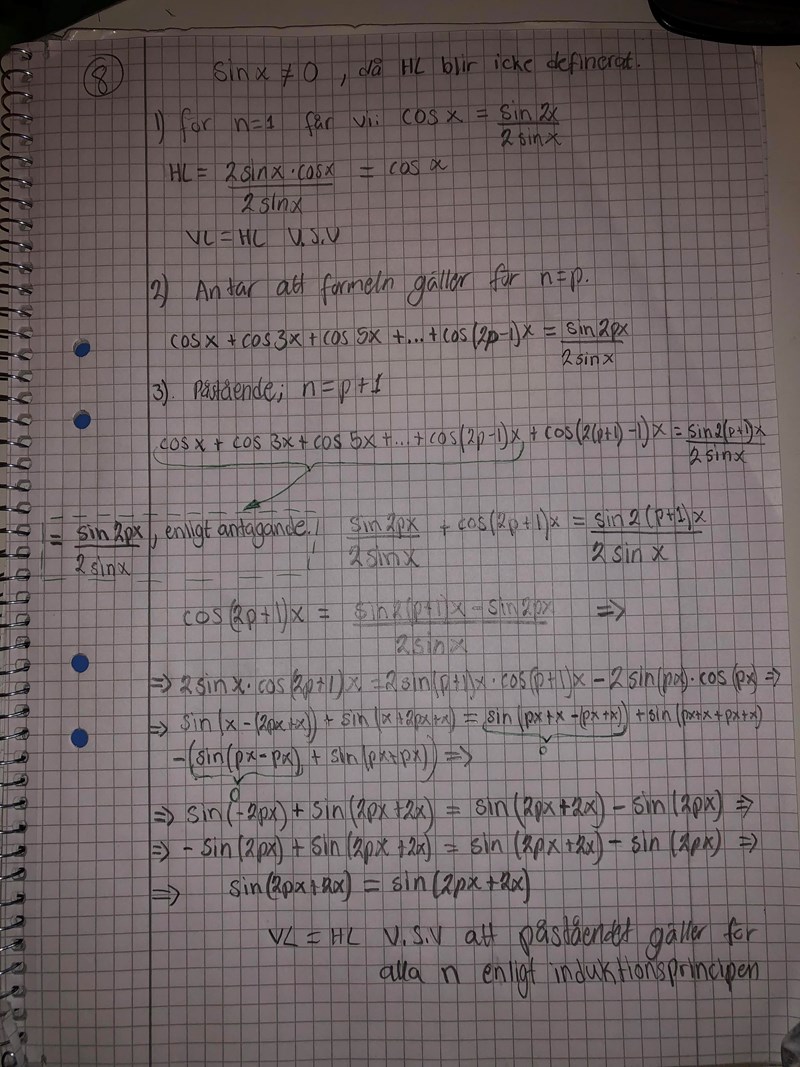 8
sin x ≠ 0, då HL blir icke definerat.
1) för n=1 får vi: cos x = sin 2x / 2 sin x
HL = 2 sin x · cos x / 2 sin x = cos x
VL = HL V.S.V
2) Antar att formeln gäller för n=p.
cos x + cos 3x + cos 5x + ... + cos(2p-1)x = sin 2px / 2 sin x
3). Påstående; n = p+1
cos x + cos 3x + cos 5x + ... + cos(2p-1)x + cos(2(p+1)-1)x = sin 2(p+1)x / 2 sin x
= sin 2px / 2 sin x, enligt antagande.
sin 2px / 2 sin x + cos(2p+1)x = sin 2(p+1)x / 2 sin x
cos(2p+1)x = sin 2(p+1)x - sin 2px / 2 sin x ⇒
⇒ 2 sin x · cos(2p+1)x = 2 sin(p+1)x · cos(p+1)x - 2 sin(px) · cos(px) ⇒
⇒ sin(x-(2px+x)) + sin(x+2px+x) = sin(px+x-(px+x)) + sin(px+x+px+x)
0
-(sin(px-px) + sin(px+px)) ⇒
0
⇒ sin(-2px) + sin(2px+2x) = sin(2px+2x) - sin(2px) ⇒
⇒ - sin(2px) + sin(2px+2x) = sin(2px+2x) - sin(2px) ⇒
⇒ sin(2px+2x) = sin(2px+2x)
VL = HL V.S.V att påståendet gäller för
alla n enligt induktionsprincipen